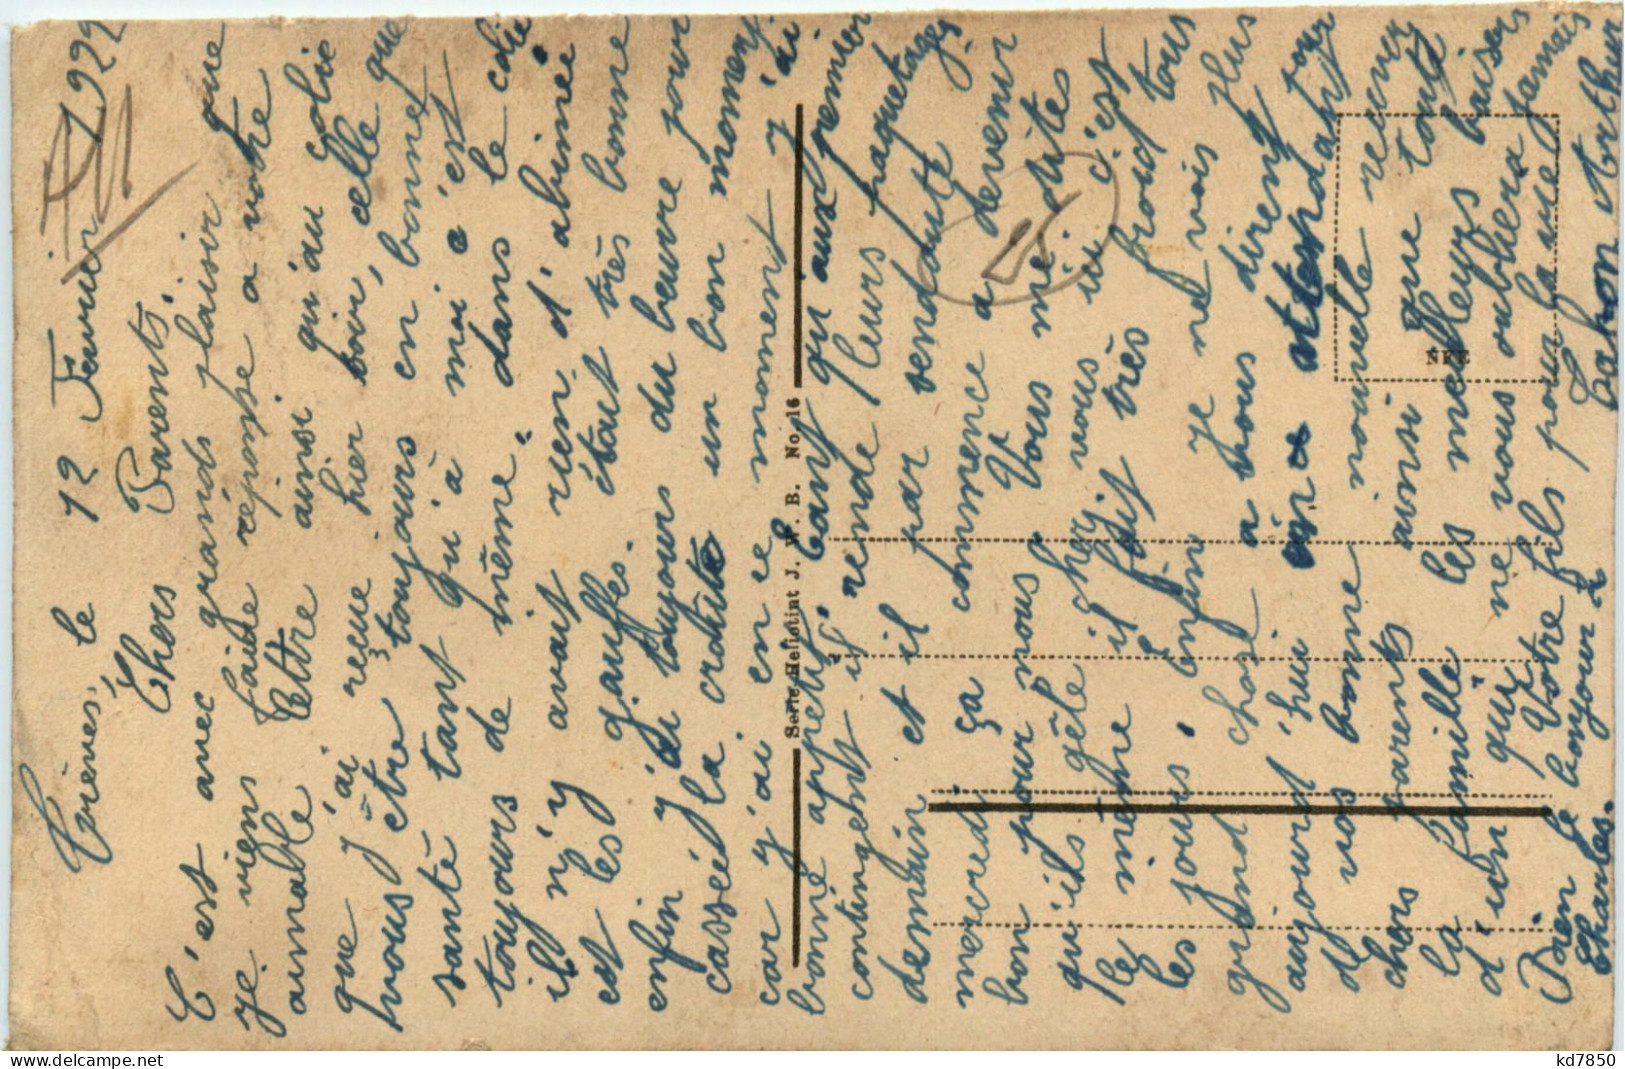 Trèves, le 12 Fevrier 1922
Chers Parents,
C'est avec grands plaisir que
je viens faire réponse a votre
aimable lettre ainsi qu'au colis
que j'ai reçue hier soir, celle que
vous être toujours en bonne
santé tant qu'à moi c'est
toujours de même. dans le colis
il n'y avait rien d'abimée
est les gauffes. était très bonne
enfin j'ai toujours du beurre pour
cassée la croute un bon moment
car j'ai en ce moment j'ai
bonne appetit tant qu'aux premier
contingent il rende leurs paquetages
demain et il par vendent
mercredi ça commence a devenir
bon pour nous Vous me dite
qu'ils gèle chez vous ici c'est
le même il fait très froid tous
les jours, enfin je ne vois plus
grand chose a vous dirent pour
aujourd'hui en attendant
de vos bonne nouvelle recever
chers parents ainsi que toute
la famille les meilleurs baisers
d'un qui ne vous oubliera jamais
Votre fils pour la vie
Bien le bonjour a Cahon Arthur
Charles.
Serie Heliotint J. W. B. No. 16
kd7850